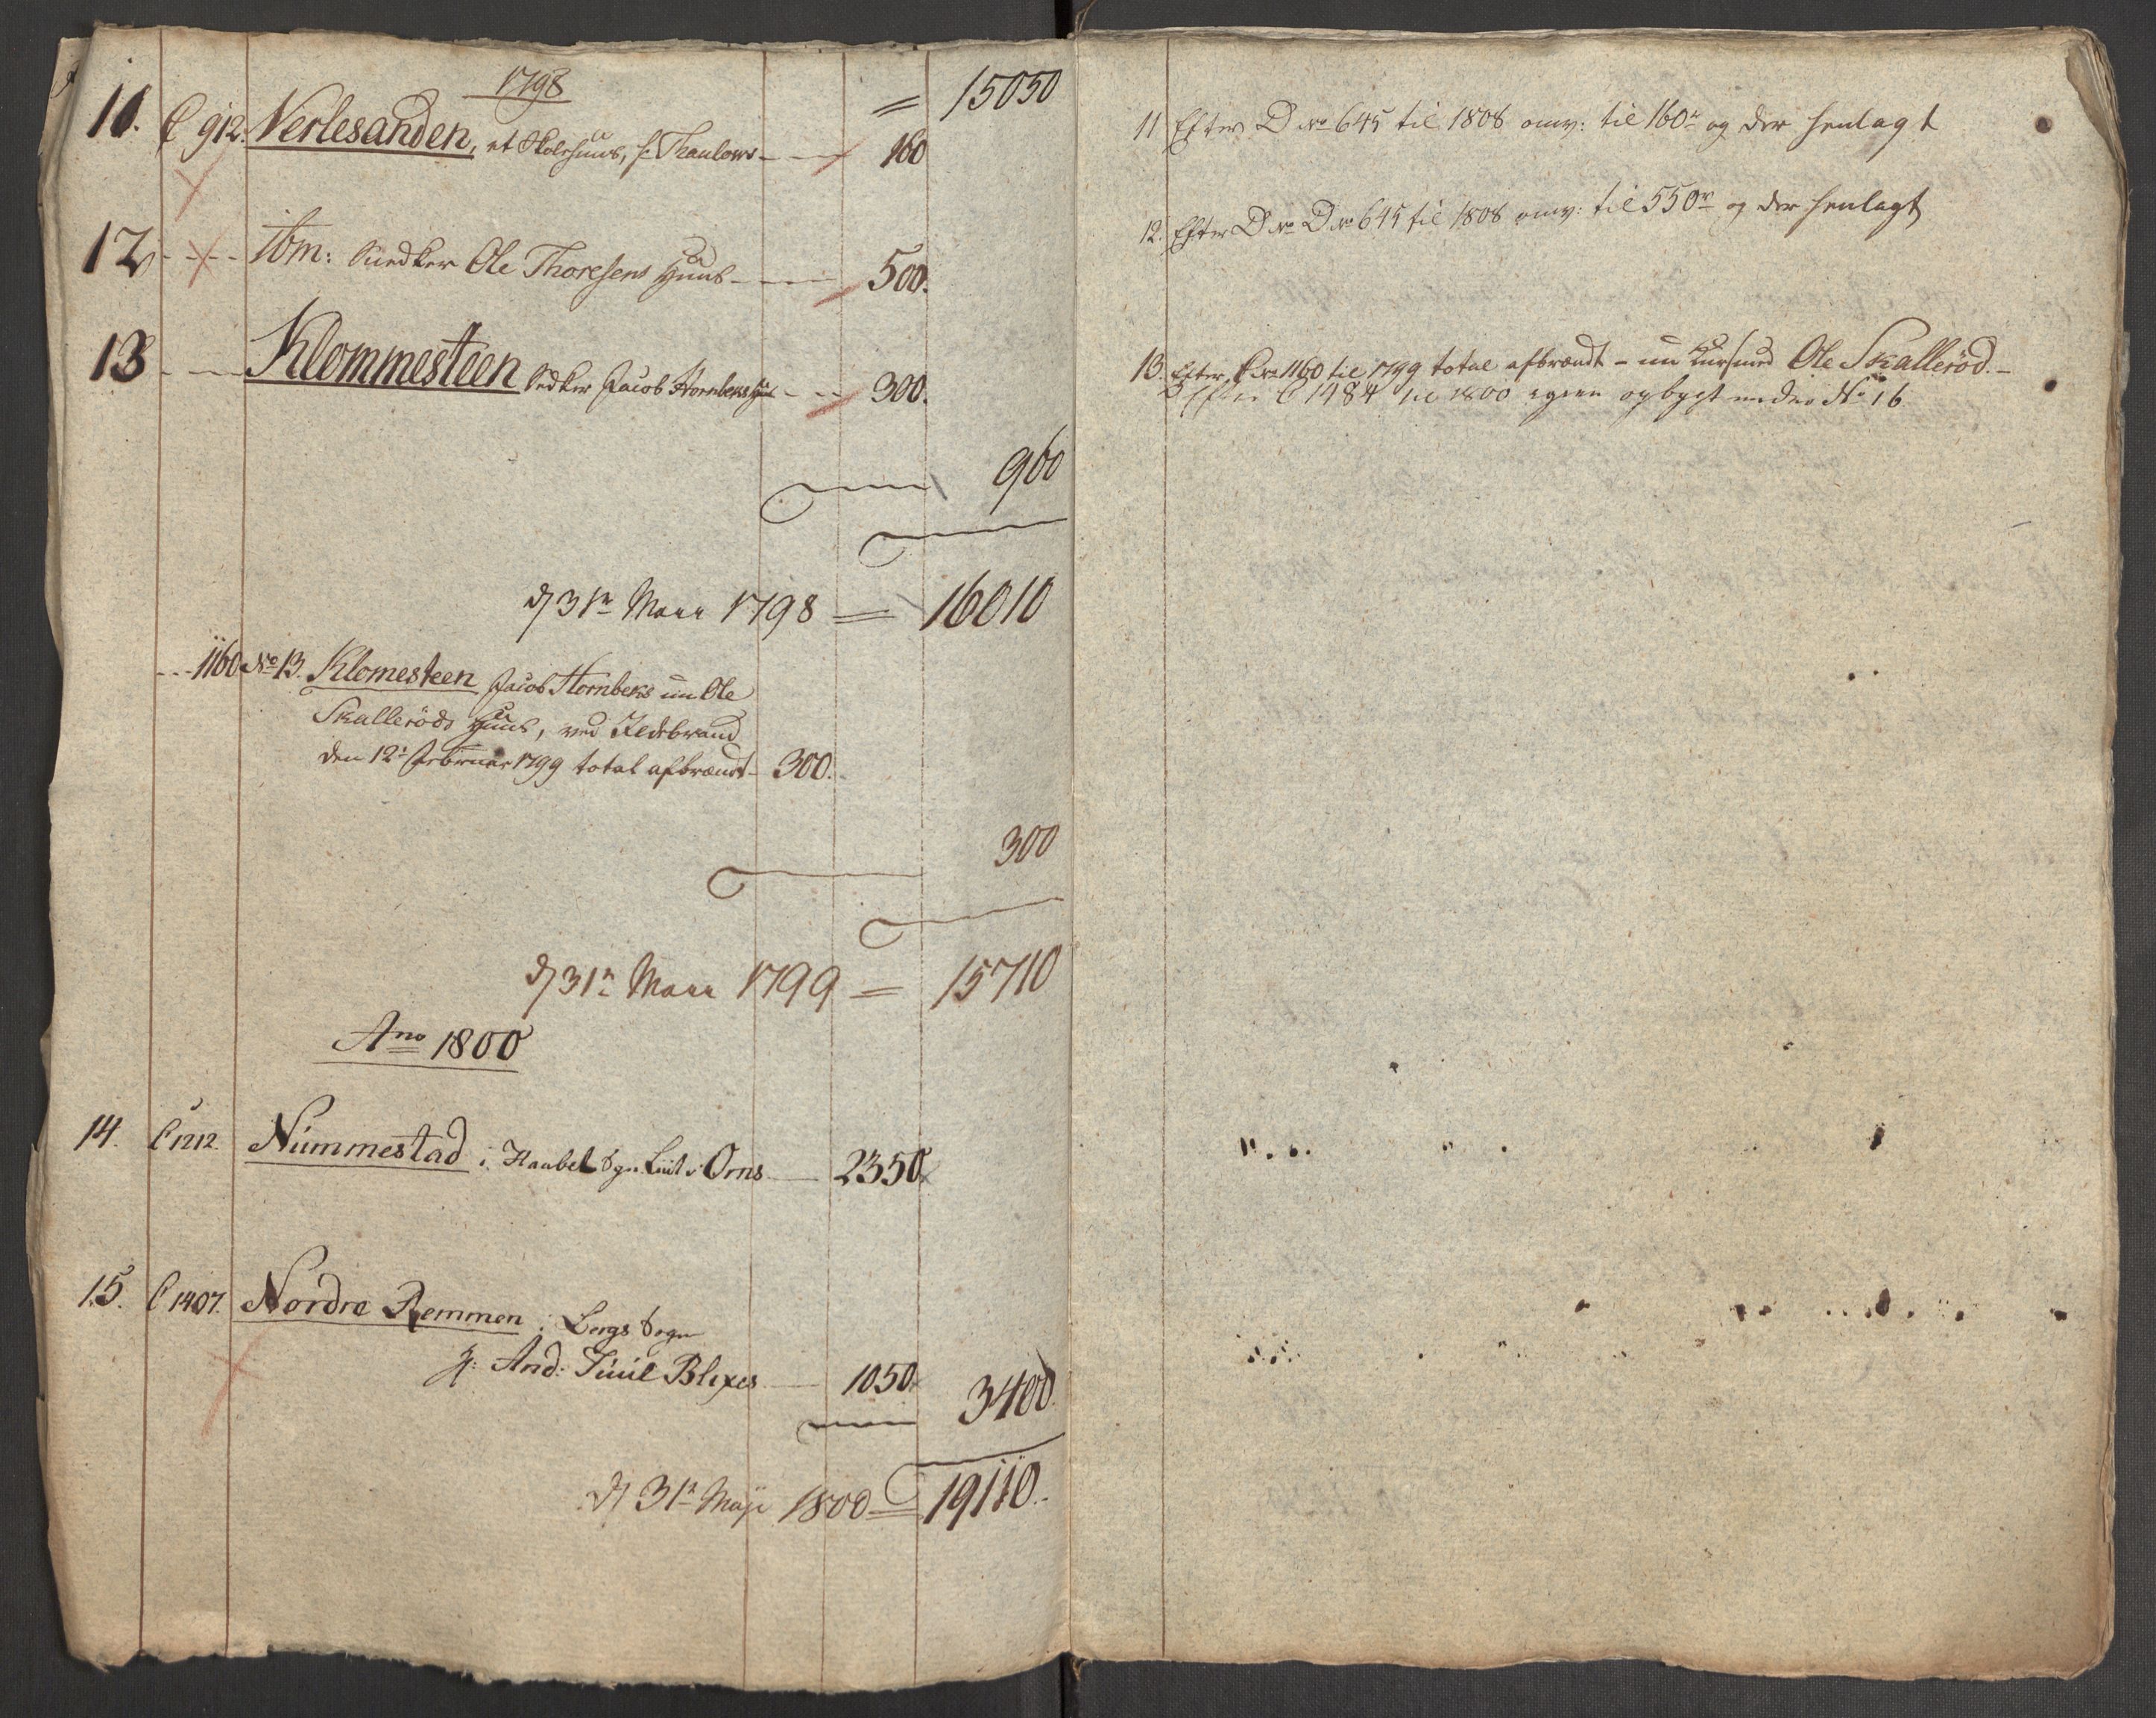 1798
= 15050
11. C 912. Verlesanden, et Skolehuus, s. Thaulows - - 160
12 - - - Ibm: Snedker Ole Thoresens Huus - - - 500.
13 - - - Klommesteen Sedker Jacob Hornbeks Huus - - - 300.
960
d 31n Marz 1798 = 16010
- - - 1160 No 13. Klomesteen Jacob Hornbeks nu Ole
Skalleröds Huus, ved Ildebrand
den 12te Februar 1799 total afbrændt - 300.
300
d 31n Marz 1799 = 15710
Ano 1800
14. C 1212. Nummestad i Haabel Sgn Leut v Orns - 2350
15. C 1407. Nordre Remmen i Bergs Sogn
Hr: And: Juul Blixes - 1050 3400.
d 31n Maji 1800 = 19110.
11 Efter D No 645 til 1808 omv: til 160r og der henlagt
12. Efter D No D No 645 til 1808 omv: til 550r og der henlagt
13. Efter C No 1160 til 1799 total afbrændt - nu Ole Skalleröd. -
Efter C 1484 til 1800 igien opbygt under No 16.